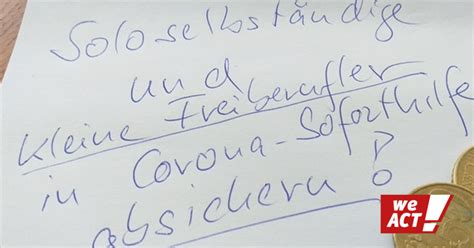 Soloselbständige
und
kleine Freiberufler
in Corona-Soforthilfe
absichern!
we
ACT!